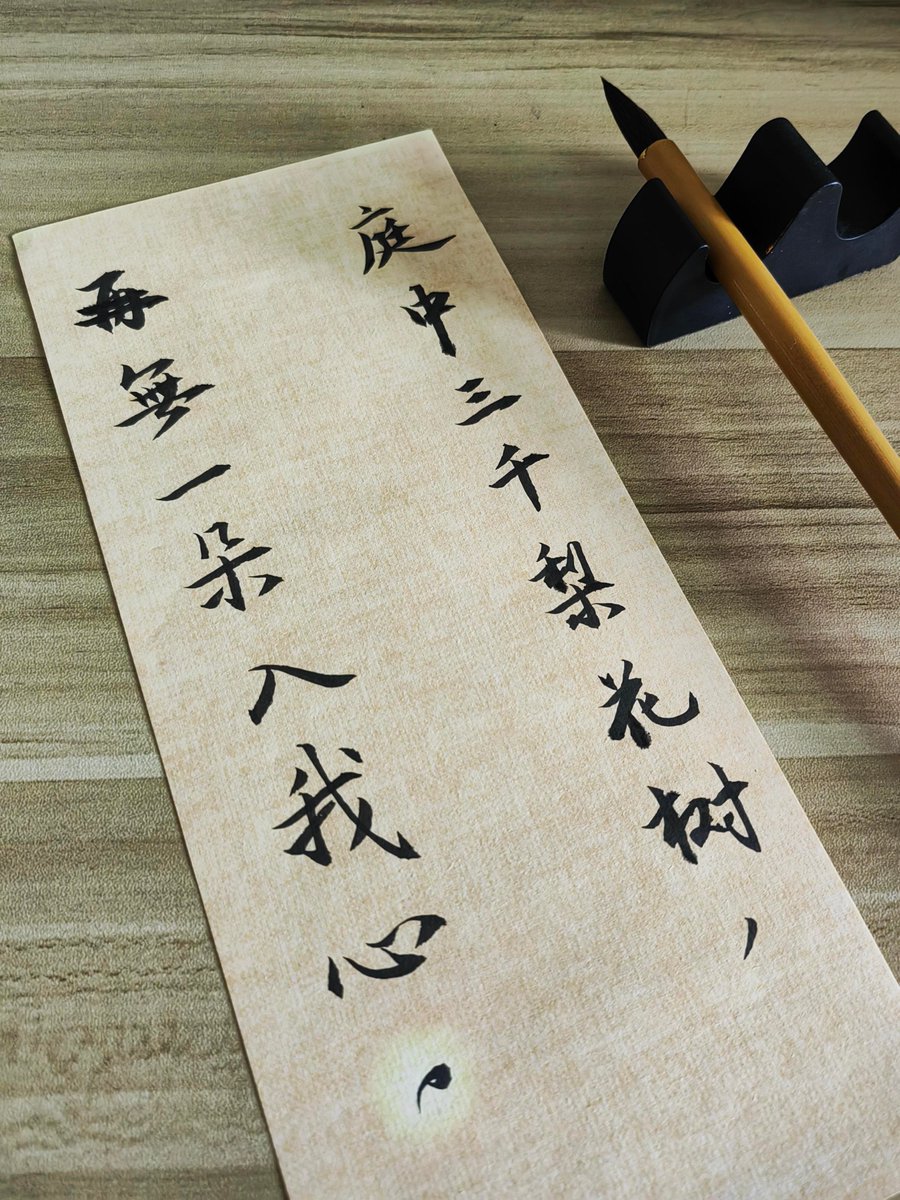 庭中三千梨花树,
再無一朵入我心。